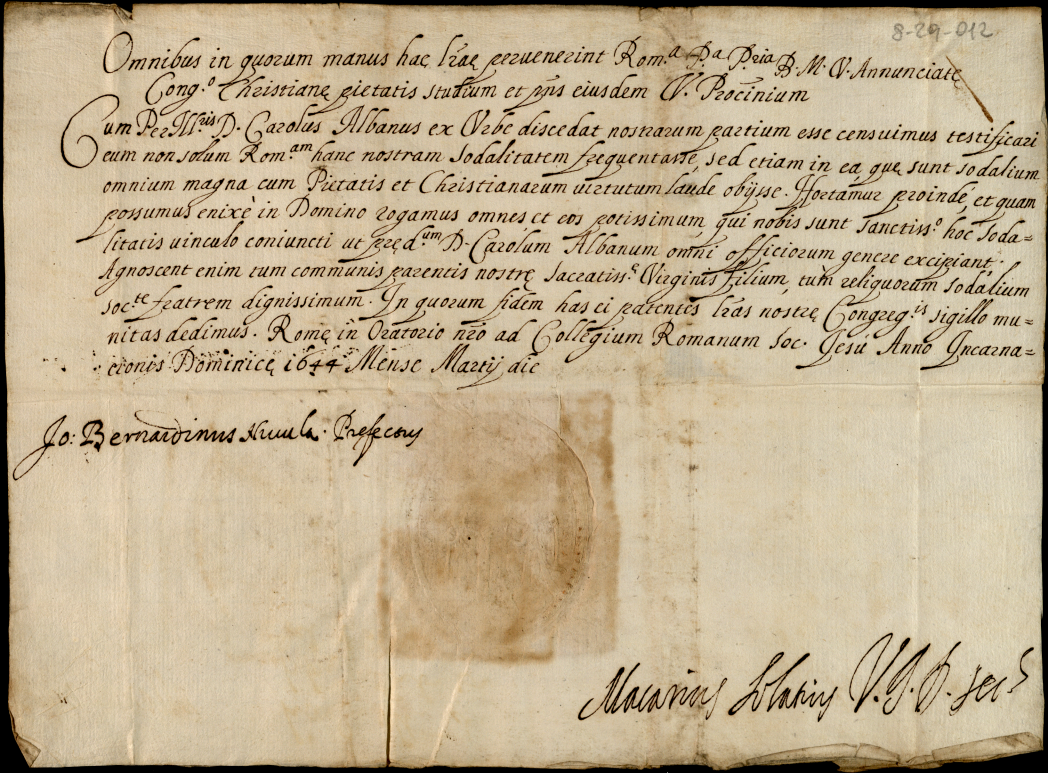 8-29-012
Omnibus in quorum manus hac lr̃ae pervenerint Rom.a P.a P.ria B. M. V. Annunciatę
Cong.o Christianę pietatis studium et p̃ns eiusdem V. Procinium
Cum Per Ill.ris D. Carolus Albanus ex Urbe discedat nostrarum partium esse censuimus testificari
eum non solum Rom.am hanc nostram Sodalitatem frequentasse, sed etiam in ea, quę sunt sodalium
omnium magna cum Pietatis et Christianarum virtutum láude obijsse. Hortámur proindè, et quam
possumus enixè in Domino rogamus omnes et eos potissimum, qui nobis sunt sanctiss.o hoc Soda=
litatis vinculo coniuncti ut pręd.um D. Carólum Albanum omni officiorum genere excipiant.
Agnoscent enim tum communis parentis nostrę Sacratiss.ę Virginis filium, tum reliquorum Sodálium
soc.te fratrem dignissimum. In quorum fidem has ei patentes lr̃as nostrę Congreg.is sigillo mu=
nitas dedimus. Romę in Oratorio nr̃o ad Collegium Romanum Soc. Jesu Anno Incarna=
tionis Dominicę 1644 Mense Martij die
Jo: Bernardinus Prefectus
Macarius V. J. D. sec.s